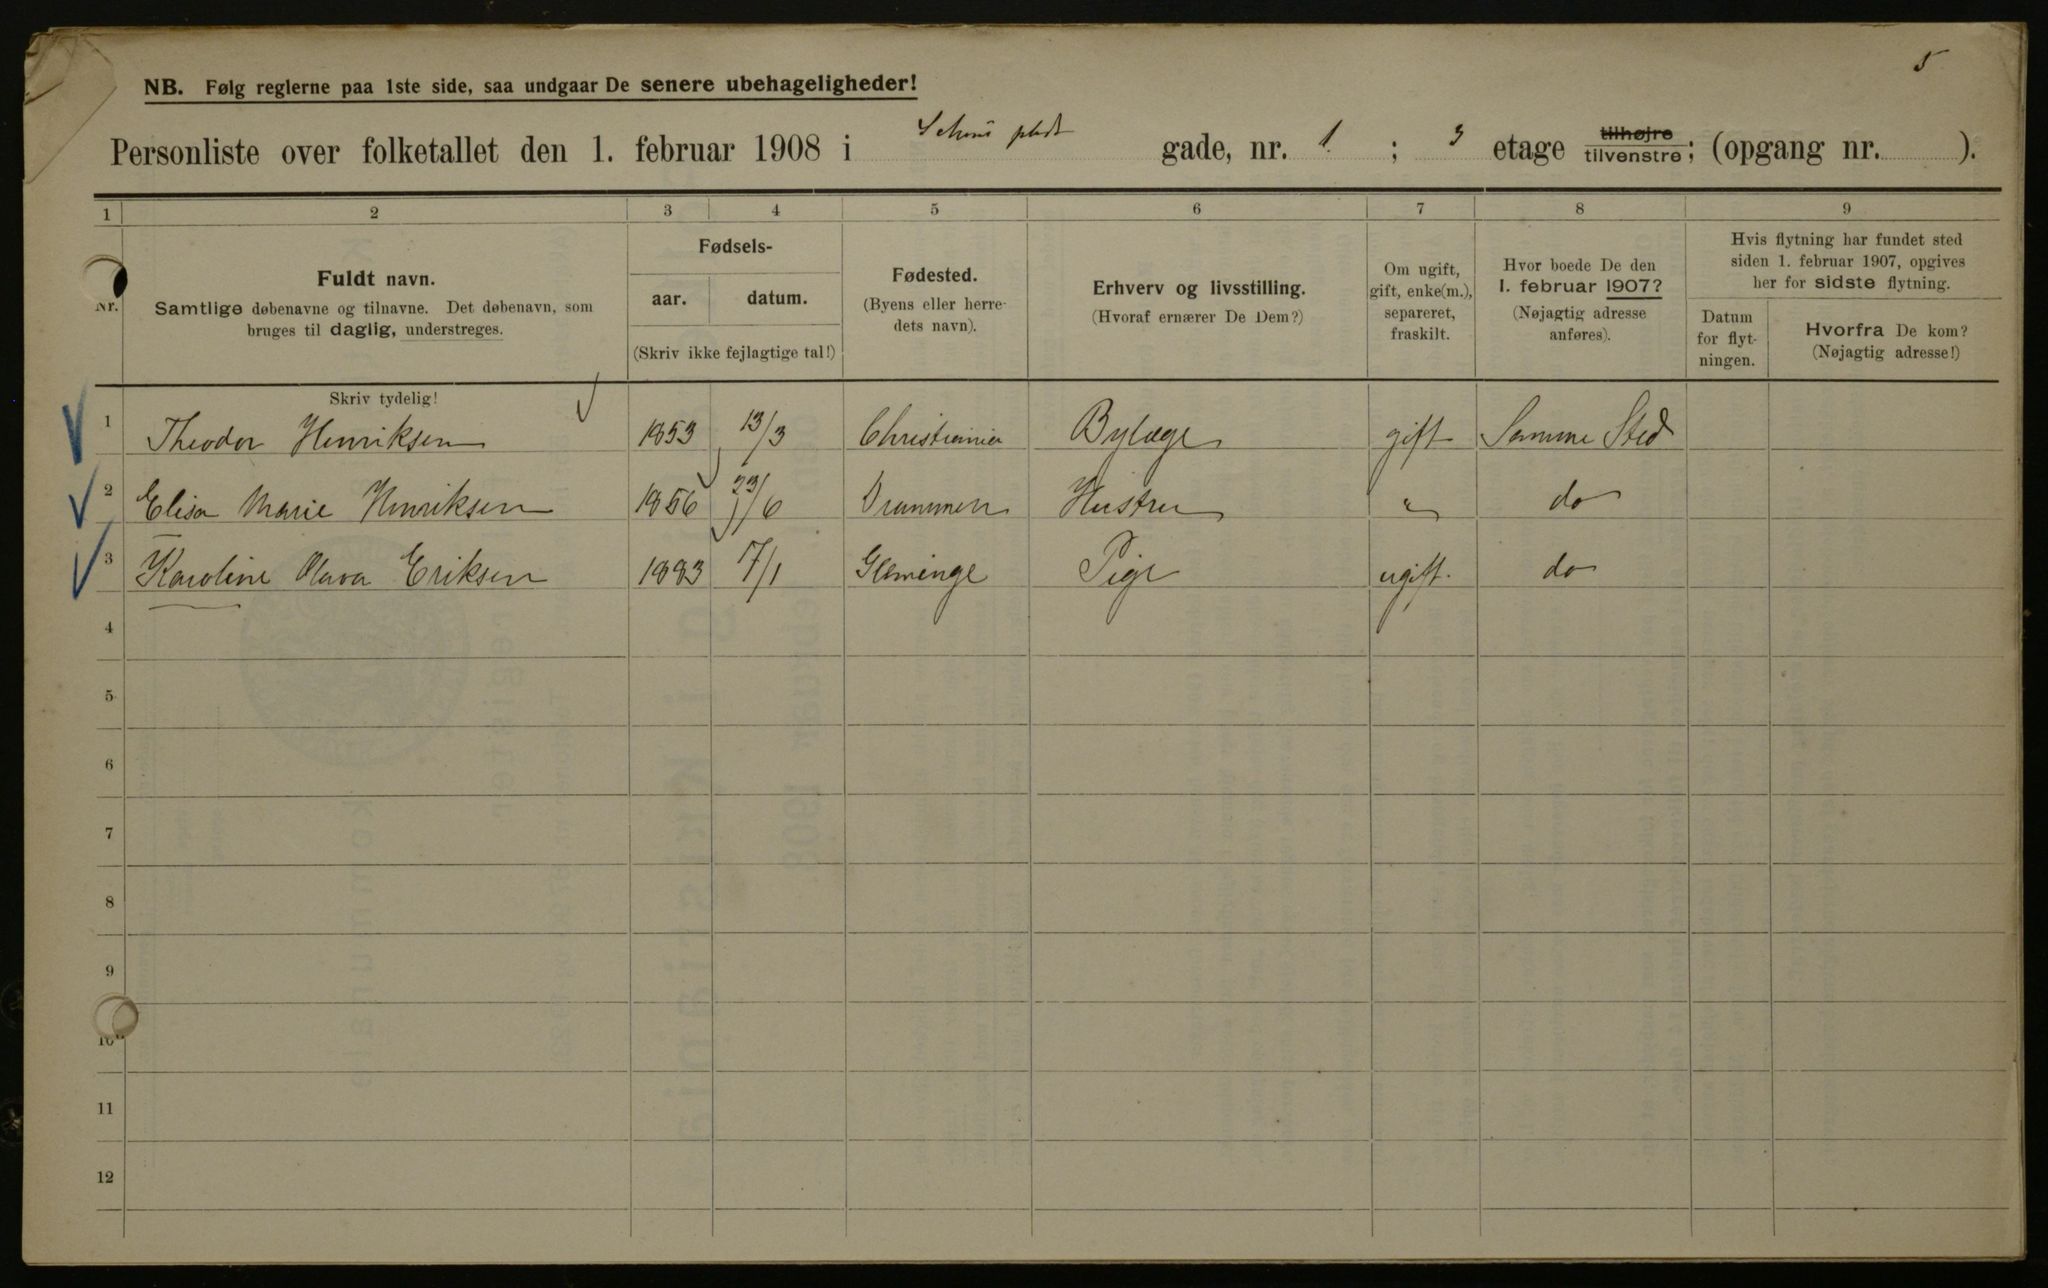 5
NB. Følg reglerne paa 1ste side, saa undgaar De senere ubehageligheder!
Personliste over folketallet den 1. februar 1908 i Schous plads gade, nr. 1 ; 3 etage tilhøjre tilvenstre; (opgang nr. ).
1 2 3 4 5 6 7 8 9
Nr.
Fuldt navn.
Samtlige døbenavne og tilnavne. Det døbenavn, som
bruges til daglig, understreges.
Fødsels-
aar. datum.
(Skriv ikke fejlagtige tal!)
Fødested.
(Byens eller herre-
dets navn).
Erhverv og livsstilling.
(Hvoraf ernærer De Dem?)
Om ugift,
gift, enke(m.),
separeret,
fraskilt.
Hvor boede De den
1. februar 1907?
(Nøjagtig adresse
anføres).
Hvis flytning har fundet sted
siden 1. februar 1907, opgives
her for sidste flytning.
Datum
for flyt-
ningen.
Hvorfra De kom?
(Nøjagtig adresse!)
Skriv tydelig!
1 Theodor Henriksen 1853 13/3 Christiania Bylæge gift Samme Sted
2 Elisa Marie Henriksen 1856 23/6 Drammen Hustru " do
3 Karoline Olava Eriksen 1883 7/1 Gleminge Pige ugift do
4
5
6
7
8
9
10
11
12